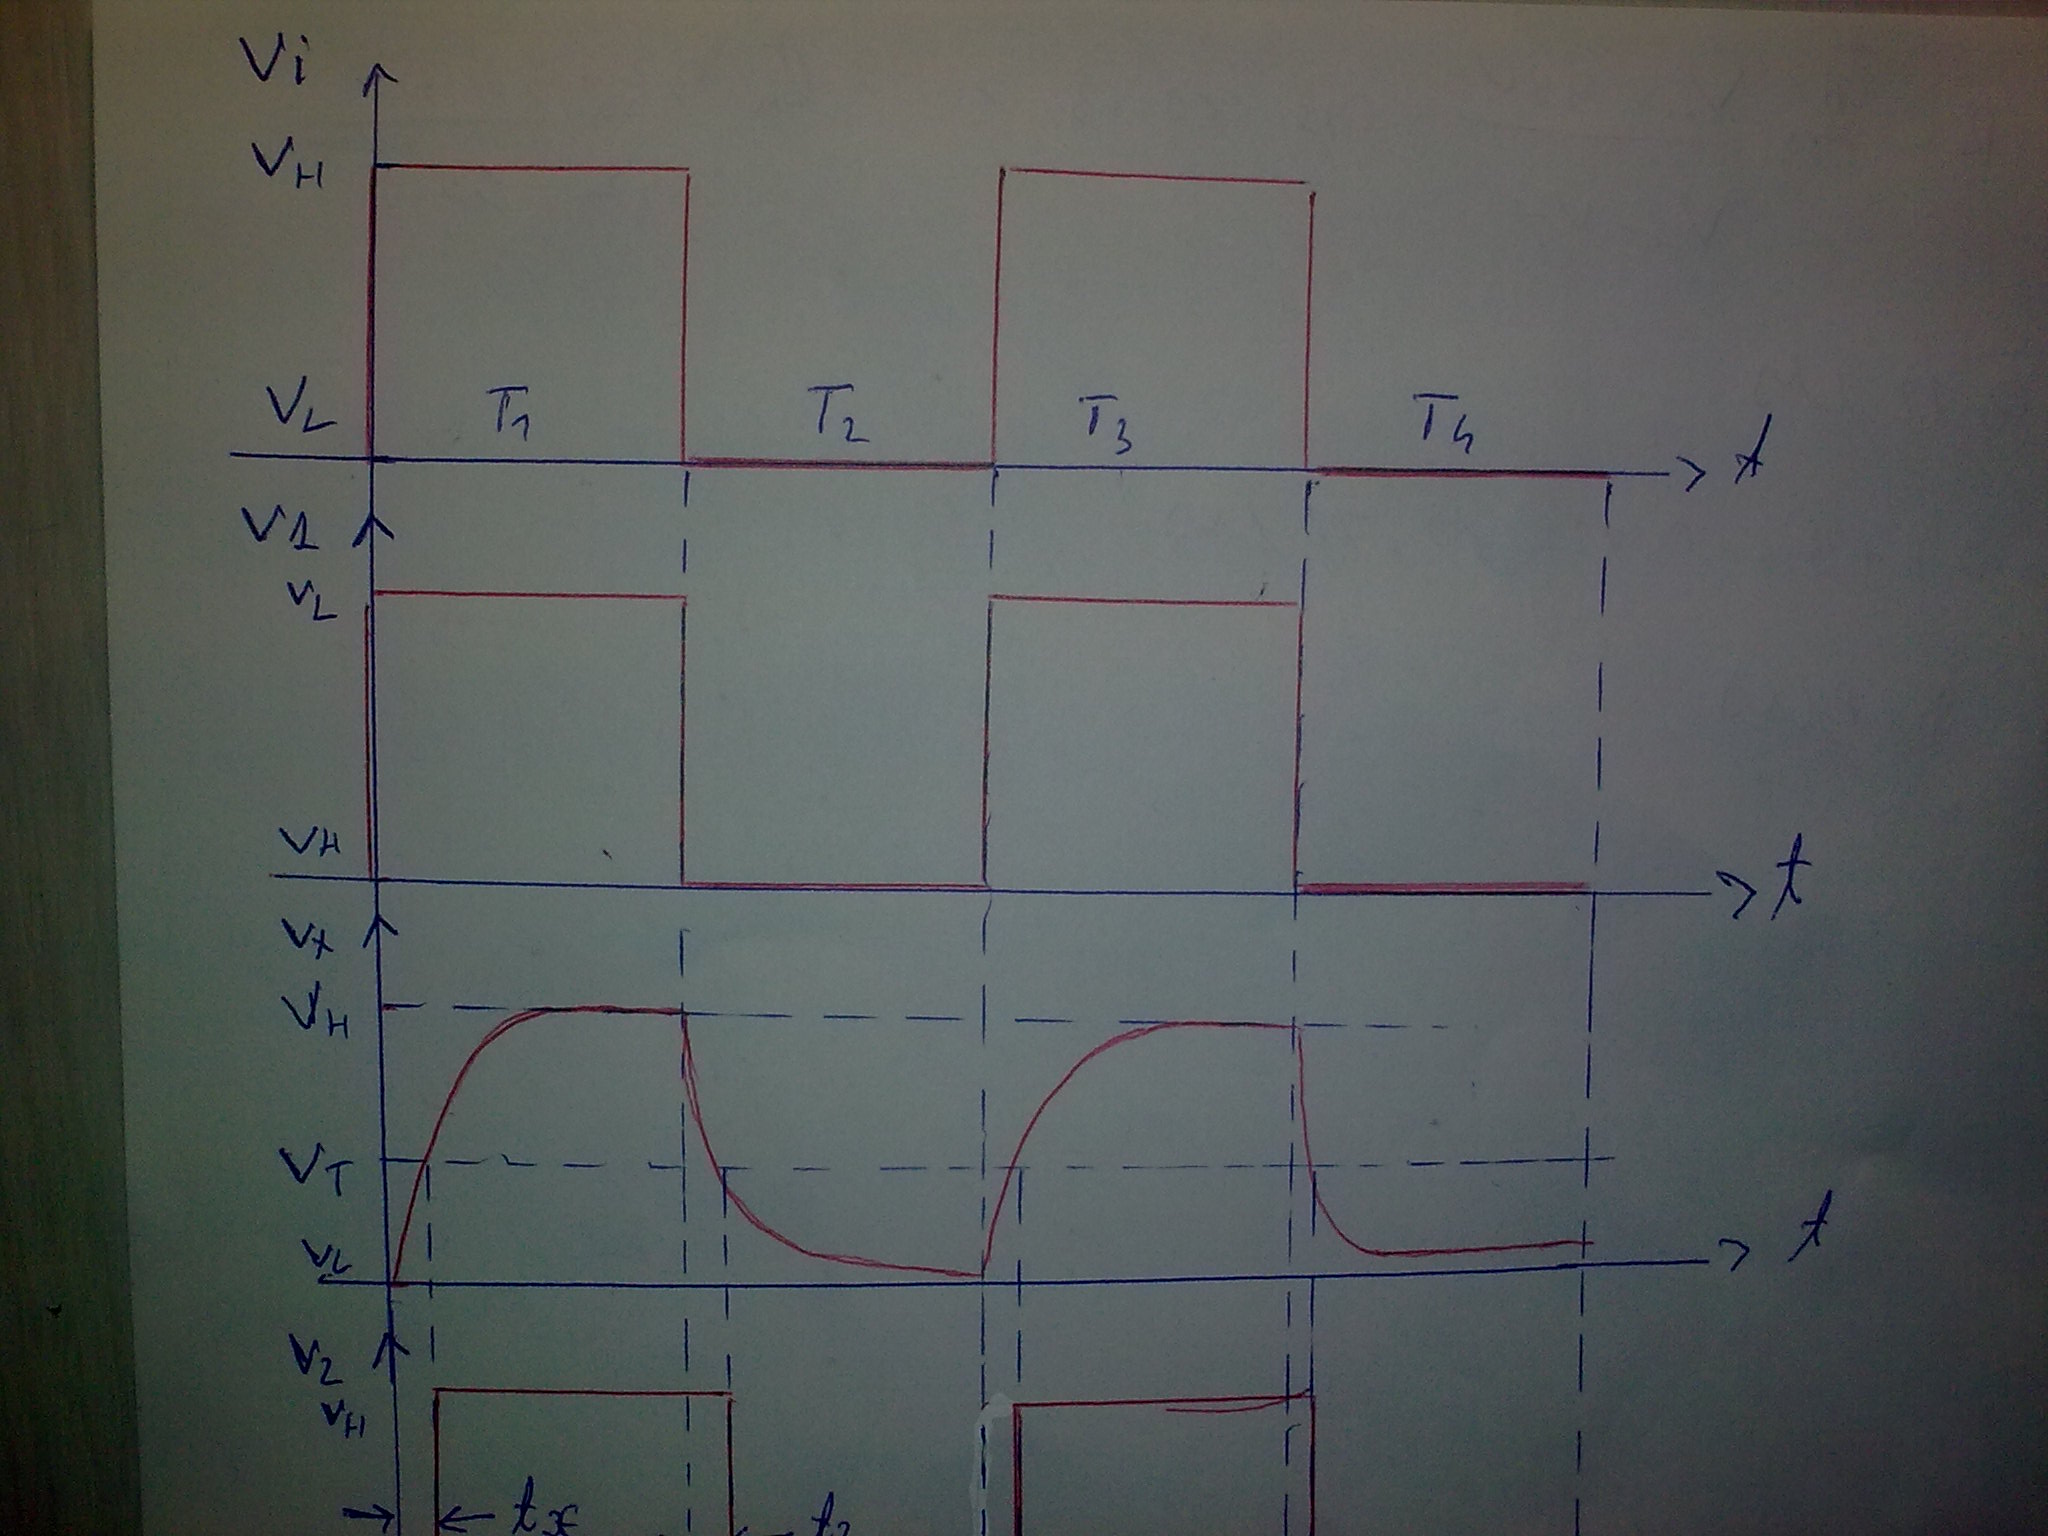 Vi
VH
VL T1 T2 T3 T4 t
V1
VL
VH t
Vx
VH
VT
VL t
V2
VH